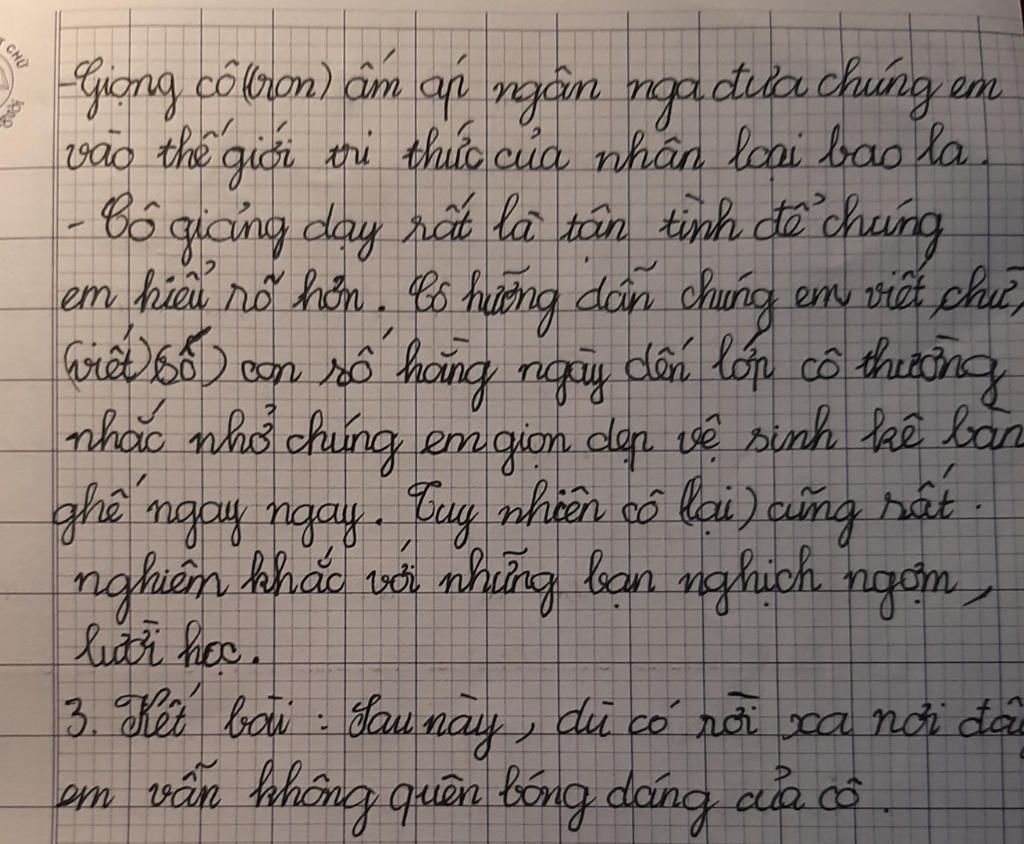 CHỮ
- Giọng cô (tron) ấm áp ngân nga đưa chúng em
vào thế giới tri thức của nhân loại bao la.
- Cô giảng dạy rất là tận tình để chúng
em hiểu rõ hơn. Cô hướng dẫn chúng em viết chữ,
(viết) (số) con số hằng ngày đến lớp cô thường
nhắc nhở chúng em gion dẹp vệ sinh kê bàn
ghế ngay ngay. Tuy nhiên cô (lại) cũng rất
nghiêm khắc với những bạn nghịch ngợm,
lười học.
3. Kết bài: Sau này, dù có rời xa nơi đâ
em vẫn không quên bóng dáng của cô.